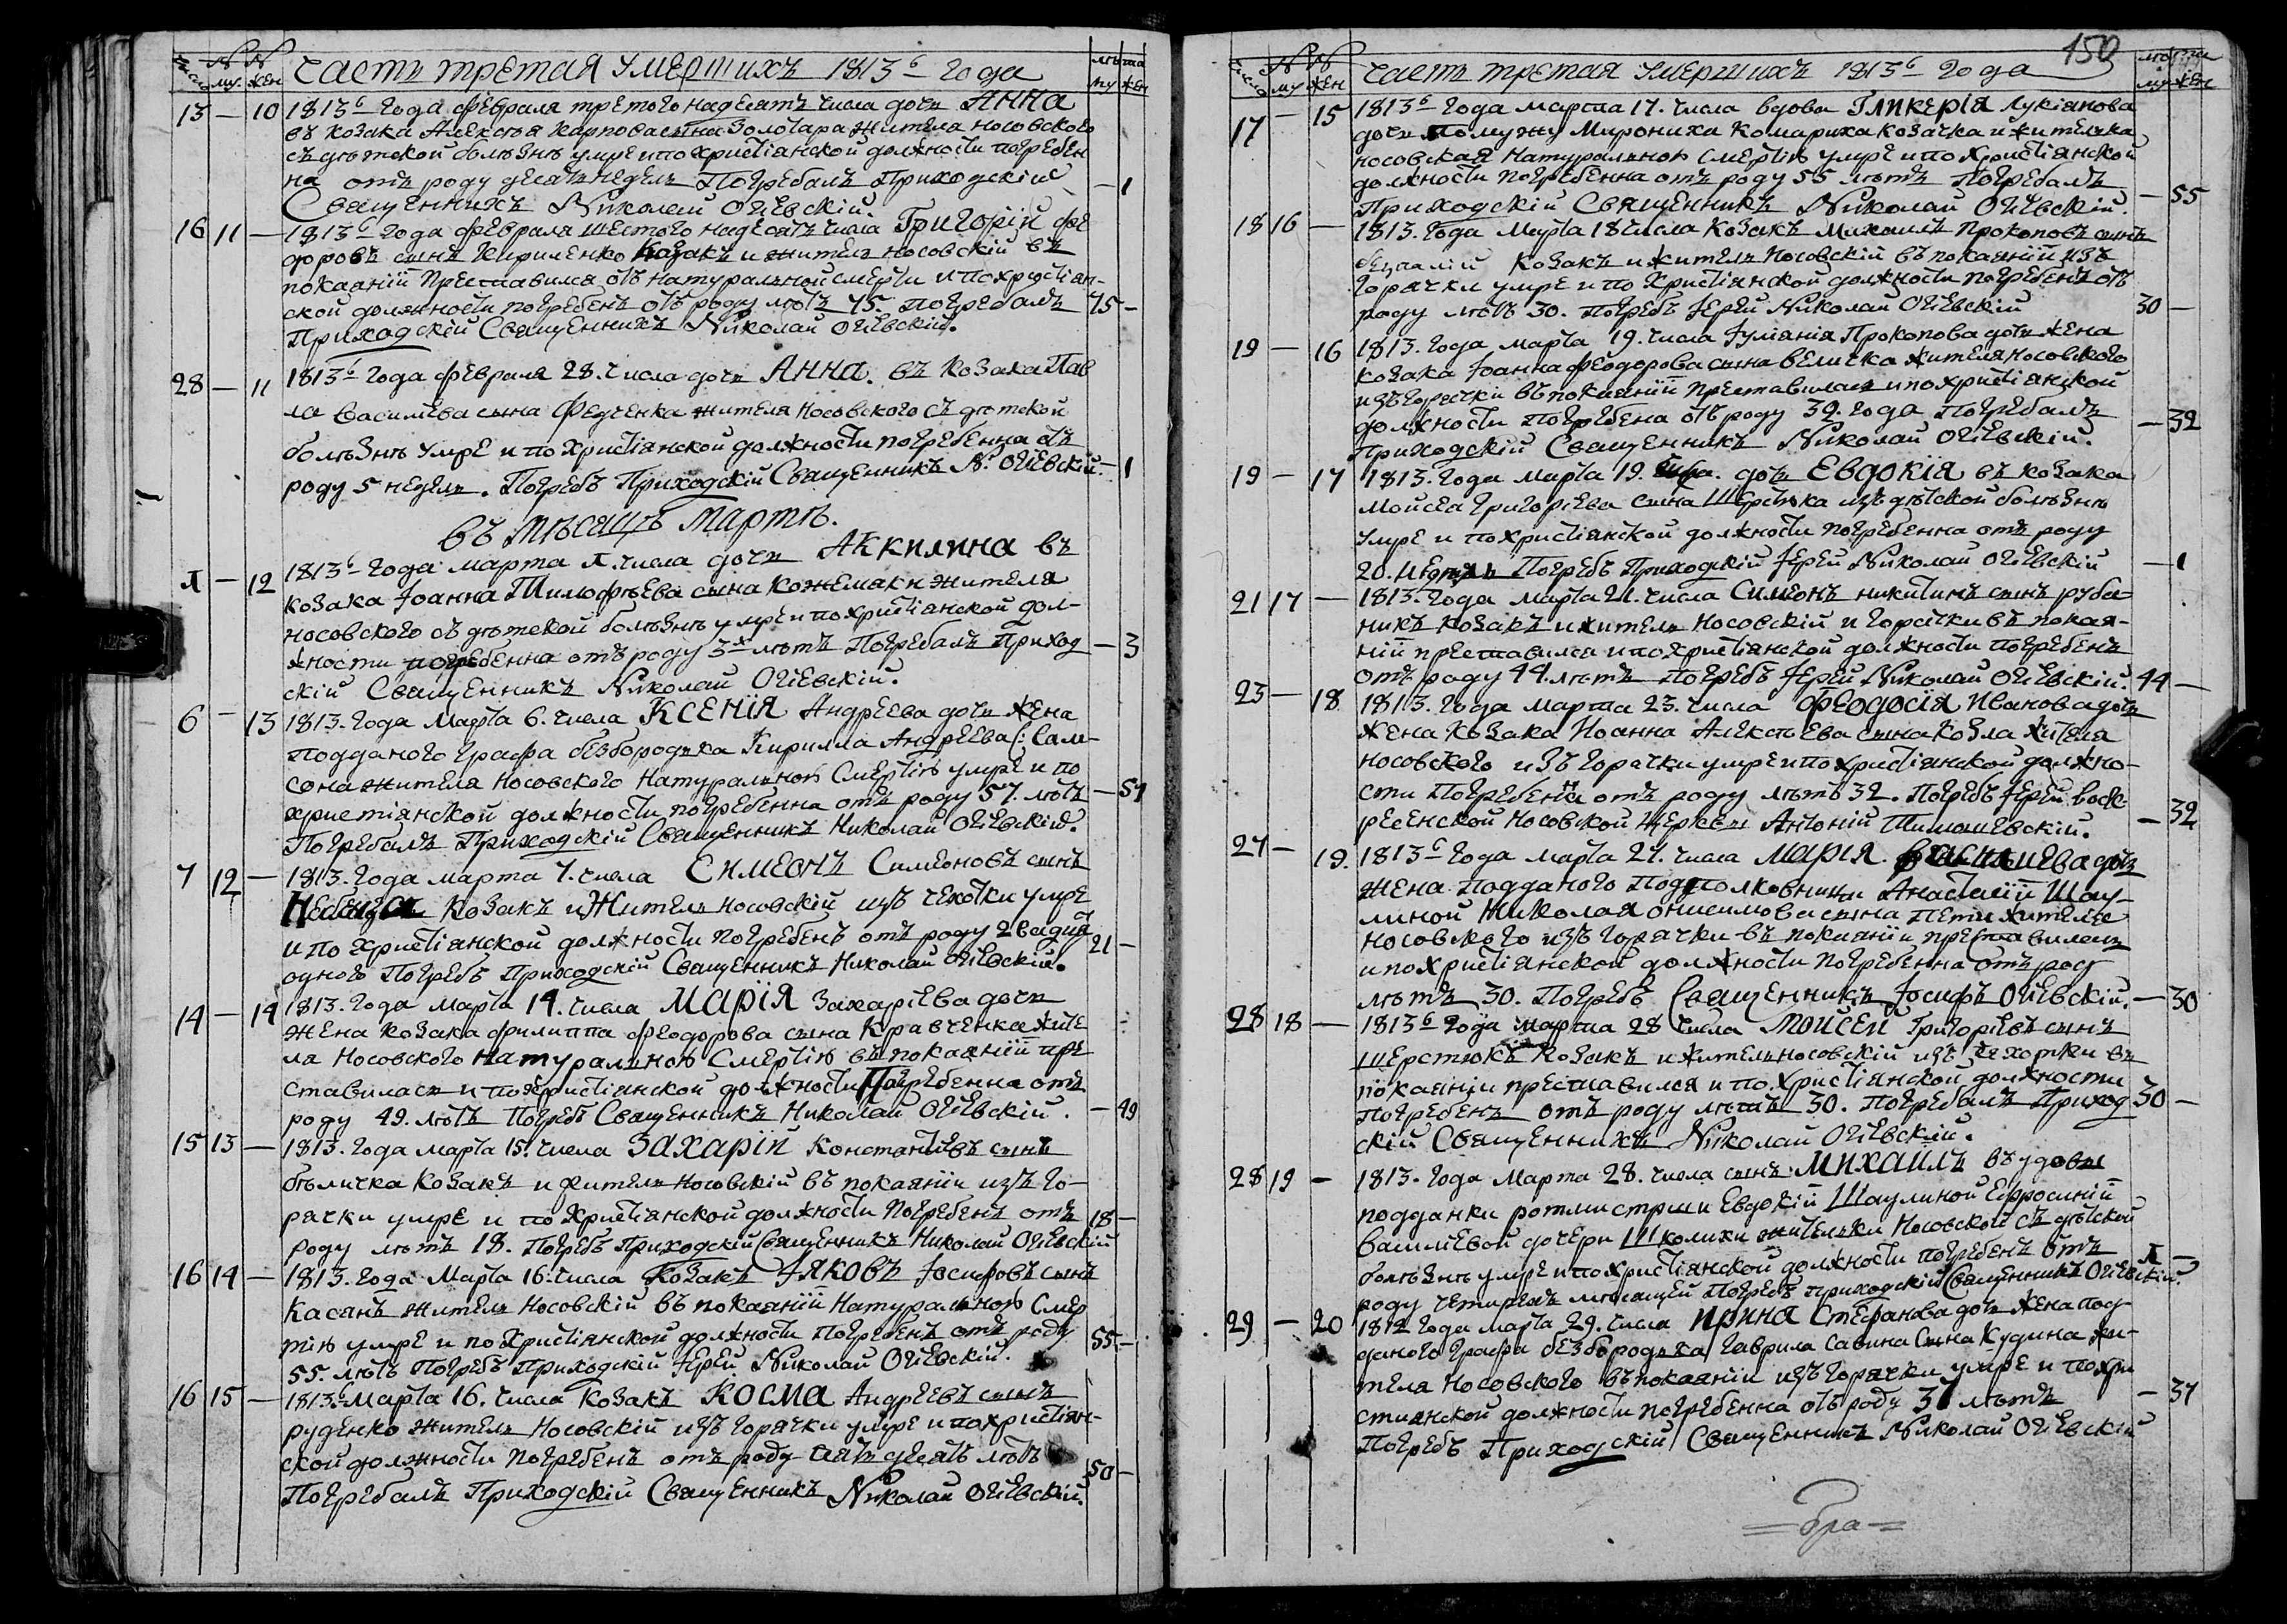 числа № му. № жен Часть третая умершихъ 1813г года лѣта му жен
13 — 10 1813г года февраля третого надесять числа дочь Анна
въ козака Алексѣя Карпова сына Золотара жителя носовского
съ дѣтской болѣзнѣ умре и по христіянской должности погребен
на отъ роду десять недель Погребалъ Приходскій — 1
Священникъ Николай Огіевскій.
16 11 — 1813г года февраля шестого надесять числа Григорій Фе
доровъ сынъ Кириченко козакъ и житель носовскій въ
покаяніи преставился отъ натуральной смерти и по християн-
ской должности погребенъ отъ роду лѣтъ 75. погребалъ 75 —
Приходскій Священникъ Николай Огіевскій.
28 — 11 1813г года февраля 28. числа дочь Анна. въ козака Пав
ла Васильева сына Федченка жителя носовского съ дѣтской
болѣзнѣ умре и по христіянской должности погребенна отъ
роду 5 недель. Погребъ Приходскій Священникъ Н. Огіевскій. — 1
въ мѣсяцѣ мартѣ.
1 — 12 1813г года марта 1. числа дочь Аккилина въ
козака Іоанна Тимофѣева сына Кожемаки жителя
носовского съ дѣтской болѣзнѣ умре и по христіянской дол-
жности погребенна отъ роду 3х лѣтъ Погребалъ Приход — 3
скій Священникъ Николай Огіевскій.
6 — 13 1813. года марта 6. числа Ксенія Андреева дочь жена
подданого графа безбородька Кирилла Андреева (: Сам-
сона жителя носовского натуральною смертію умре и по
христіянской должности погребенна отъ роду 57. лѣтъ — 57
Погребалъ Приходскій Священникъ Николай Огіевскій.
7 12 — 1813. года марта 7. числа Симеонъ Симеоновъ сынъ
козакъ и житель носовскій изъ чехотки умре
и по христіянской должности погребенъ отъ роду двадця 21 —
одного Погребъ Приходскій Священникъ Николай Огіевскій.
14 — 14 1813. года марта 14. числа Марія Захаріева дочь
жена козака Филиппа Феодорова сына Кравченка жите
ля носовского натуральною смертію въ покаяніи пре
ставилась и по христіянской должности погребенна отъ
роду 49. лѣтъ Погребъ Священникъ Николай Огіевскій. — 49
15 13 — 1813. года марта 15. числа Захарій Константіевъ сынъ
бѣличка козакъ и житель носовскій въ покаяніи изъ го-
рячки умре и по христіянской должности погребенъ отъ 18 —
роду лѣтъ 18. Погребъ Приходскій Священникъ Николай Огіевскій
16 14 — 1813. года марта 16. числа козакъ Іяковъ Іосифовъ сынъ
Касянъ житель носовскій въ покаяніи натуральною смер
тію умре и по христіянской должности погребенъ отъ роду 55 —
55. лѣтъ Погребъ Приходскій Іерей Николай Огіевскій.
16 15 — 1813г марта 16. числа козакъ Косма Андреевъ сынъ
руденко житель носовскій изъ горячки умре и по христіян-
ской должности погребенъ отъ роду пять десять лѣтъ 50 —
Погребалъ Приходскій Священникъ Николай Огіевскій.
150
числа № му № жен Часть третая умершихъ 1813г года лѣта му жен
17 — 15 1813г года марта 17. числа вдова Гликерія Лукіянова
дочь по мужу Мирониха Комариха козачка и жителька
носовская натуральною смертію умре и по христіянской
должности погребенна отъ роду 55 лѣтъ Погребалъ — 55
Приходскій Священникъ Николай Огіевскій.
18 16 — 1813. года марта 18 числа козакъ Михаилъ Прокоповъ сынъ
козакъ и житель носовскій въ покаяніи изъ
горячки умре и по христіянской должности погребенъ отъ
роду лѣтъ 30. Погребъ Іерей Николай Огіевскій 30 —
19 — 16 1813. года марта 19. числа Іуліянія Прокопова дочь жена
козака Іоанна Феодорова сына величка жителя носовского
изъ горячки въ покаяніи преставилась и по христіянской
должности погребена отъ роду 32. года Погребалъ — 32
Приходскій Священникъ Николай Огіевскій.
19 — 17 1813. года марта 19. числа. дочь Евдокія въ козака
Мойсея Григоріева сына Шерстюка изъ дѣтской болѣзнѣ
умре и по христіянской должности погребенна отъ роду
20. недель Погребъ Приходскій Іерей Николай Огіевскій — 1
21 17 — 1813. года марта 21. числа Симеонъ никитинъ сынъ руба-
никъ козакъ и житель носовскій и горячки въ покая-
ніи преставился и по христіянской должности погребенъ
отъ роду 44. лѣтъ Погребъ Іерей Николай Огіевскій. 44 —
23 — 18 1813. года марта 23. числа Феодосія Иванова дочь
жена козака Иоанна Алексѣева сына Козла жителя
носовского изъ горячки умре и по христіянской должно-
сти погребенна отъ роду лѣтъ 32. Погребъ Іерей воск
ресенской носовской церкви Антоній Тимошевскій. — 32
27 — 19. 1813г года марта 27. числа Марія. Васильева дочь
жена подданого подполковници Анастасіи Шау-
линой Николая онисимова сына Пети жителя
носовского изъ горячки въ покаяніи преставилась
и по христіянской должности погребенна отъ род
лѣтъ 30. Погребъ Священникъ Іосифъ Огіевскій. — 30
28 18 — 1813г года марта 28 числа Мойсей Григоріевъ сынъ
Шерстюкъ козакъ и житель носовскій изъ чехотки въ
покаяніи преставился и по христіянской должности
погребенъ отъ роду лѣтъ 30. Погребалъ Приход 30 —
скій Священникъ Николай Огіевскій.
28 19 — 1813. года марта 28. числа сынъ Михаилъ въ удовы
подданки ротмистрши Евдокіи Шаулиной Ефросиніи
Василіевой дочери Школихи жительки носовской съ дѣтской
болѣзнѣ умре и по христіянской должности погребенъ отъ 1 —
роду четирехъ месяцей Погребъ приходскій Священникъ Огіевскій.
29 — 20 1812 года марта 29. числа Ирина Стефанова дочь жена под
даного графа безбородька Гаврила Савина сына Кудина жи-
теля носовского въ покаяніи изъ горячки умре и по хри
стиянской должности погребенна отъ роду 37 лѣтъ — 37
Погребъ Приходскій Священникъ Николай Огіевскій